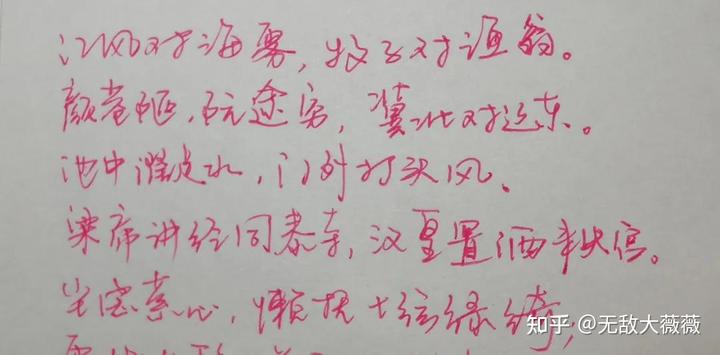 江风对海雾，牧子对渔翁。
颜巷陋，阮途穷，冀北对辽东。
池中濯足水，门外打头风。
梁帝讲经同泰寺，汉皇置酒未央宫。
尘虑萦心，懒抚七弦绿绮；
知乎 @无敌大薇薇